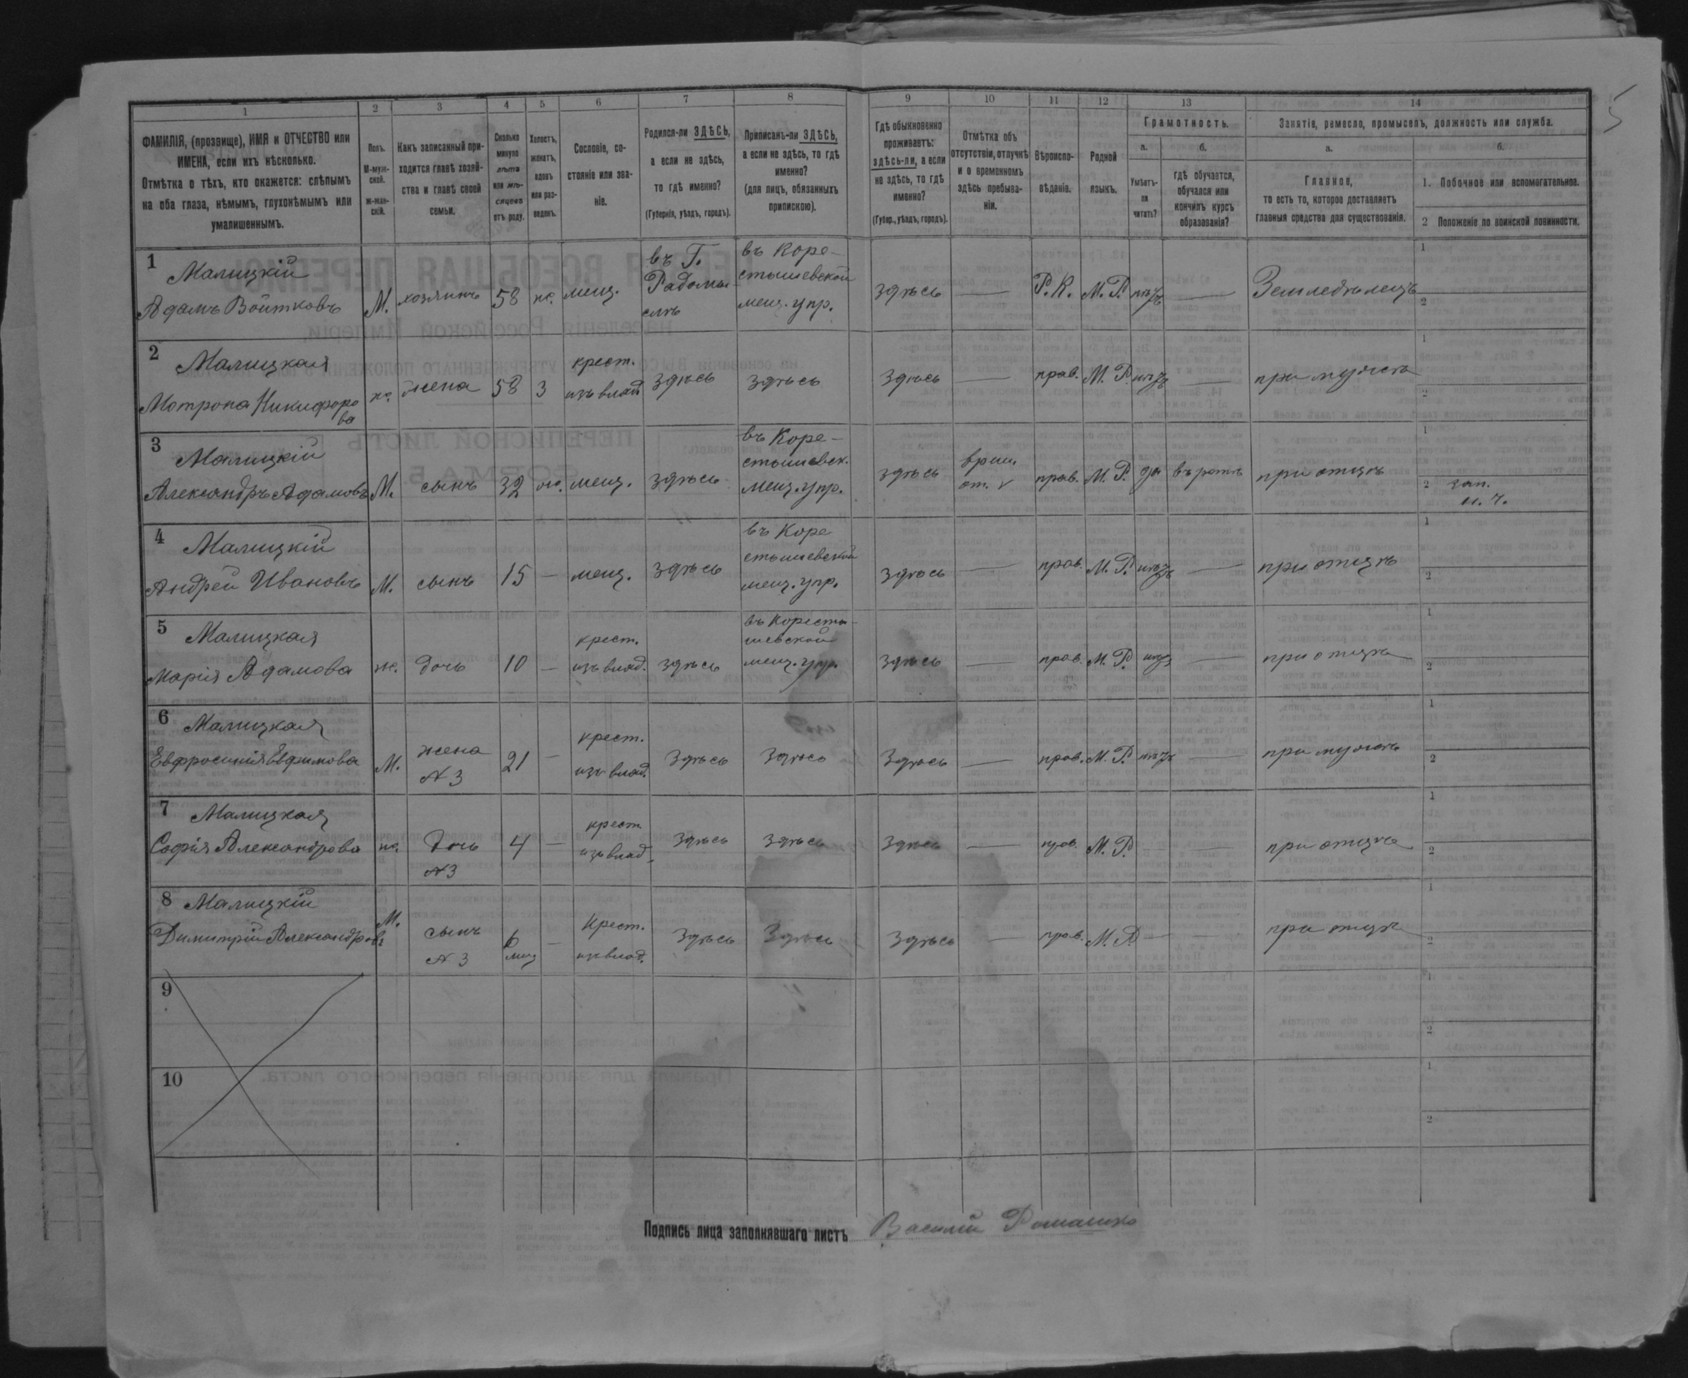 1 2 3 4 5 6 7 8 9 10 11 12 13 14
5
ФАМИЛІЯ, (прозвище), ИМЯ и ОТЧЕСТВО или
ИМЕНА, если ихъ нѣсколько.
Отмѣтка о тѣхъ, кто окажется: слѣпымъ
на оба глаза, нѣмымъ, глухонѣмымъ или
умалишеннымъ.
Полъ.
М-муж-
ской.
ж-жен-
скій.
Какъ записанный при-
ходится главѣ хозяй-
ства и главѣ своей
семьи.
Сколько
минуло
лѣтъ
или мѣ-
сяцевъ
отъ роду.
Холостъ,
женатъ,
вдовъ
или раз-
веденъ.
Сословіе, со-
стояніе или зва-
ніе.
Родился-ли ЗДѢСЬ,
а если не здѣсь,
то гдѣ именно?
(Губернія, уѣздъ, городъ).
Приписанъ-ли ЗДѢСЬ,
а если не здѣсь, то гдѣ
именно?
(для лицъ, обязанныхъ
припискою).
Гдѣ обыкновенно
проживаетъ:
здѣсь-ли, а если
не здѣсь, то гдѣ
именно?
(Губер., уѣздъ, городъ).
Отмѣтка объ
отсутствіи, отлучкѣ
и о временномъ
здѣсь пребыва-
ніи.
Вѣроиспо-
вѣданіе.
Родной
языкъ.
Грамотность.
а.
Умѣетъ-
ли
читать?
б.
гдѣ обучается,
обучался или
кончилъ курсъ
образованія?
Занятіе, ремесло, промыселъ, должность или служба.
а.
Главное,
то есть то, которое доставляетъ
главныя средства для существованія.
б.
1. Побочное или вспомогательное.
2 Положеніе по воинской повинности.
1
Малицкій
Адамъ Войтковъ
М. хозяинъ 58 ж. мещ.
въ Г.
Радомы
слѣ
въ Коро-
стышевской
мещ. упр.
здѣсь — Р. К. М. Р. нѣтъ — Земледѣлецъ
1
2
2
Малицкая
Мотрона Никифоро
ва
ж. жена 58 3
крест.
изъ влад
здѣсь здѣсь здѣсь — прав. М. Р. нѣтъ — при мужѣ
1
2
3
Малицкій
Александръ Адамовъ
М. сынъ 32 ж. мещ. здѣсь
въ Коро-
стышевск.
мещ. упр.
здѣсь
врем.
от.
прав. М. Р. да въ ротѣ при отцѣ
1
2 зап.
н. ч.
4
Малицкій
Андрей Ивановъ
М. сынъ 15 — мещ. здѣсь
въ Коро
стышевской
мещ. упр.
здѣсь — прав. М. Р. нѣтъ — при отцѣ
1
2
5
Малицкая
Марія Адамова
ж. дочь 10 —
крест.
изъ влад.
здѣсь
въ Коросты-
шевской
мещ. упр.
здѣсь — прав. М. Р. нѣт — при отцѣ
1
2
6
Малицкая
Евфросинія Евфимова
М.
жена
N 3
21 —
крест.
изъ влад.
здѣсь здѣсь здѣсь — прав. М. Р. нѣтъ — при мужѣ
1
2
7
Малицкая
Софія Александрова
ж.
Дочь
N 3
4 —
крест
изъ влад.
здѣсь здѣсь здѣсь — прав. М. Р. — — при отцѣ
1
2
8
Малицкій
Димитрій Александровъ
М.
сынъ
N 3
6
мец
—
Крест.
изъ влад.
здѣсь здѣсь здѣсь — прав. М. Р. — — при отцѣ
1
2
9
1
2
10
1
2
Подпись лица заполнявшаго листъ Василій Ромашко